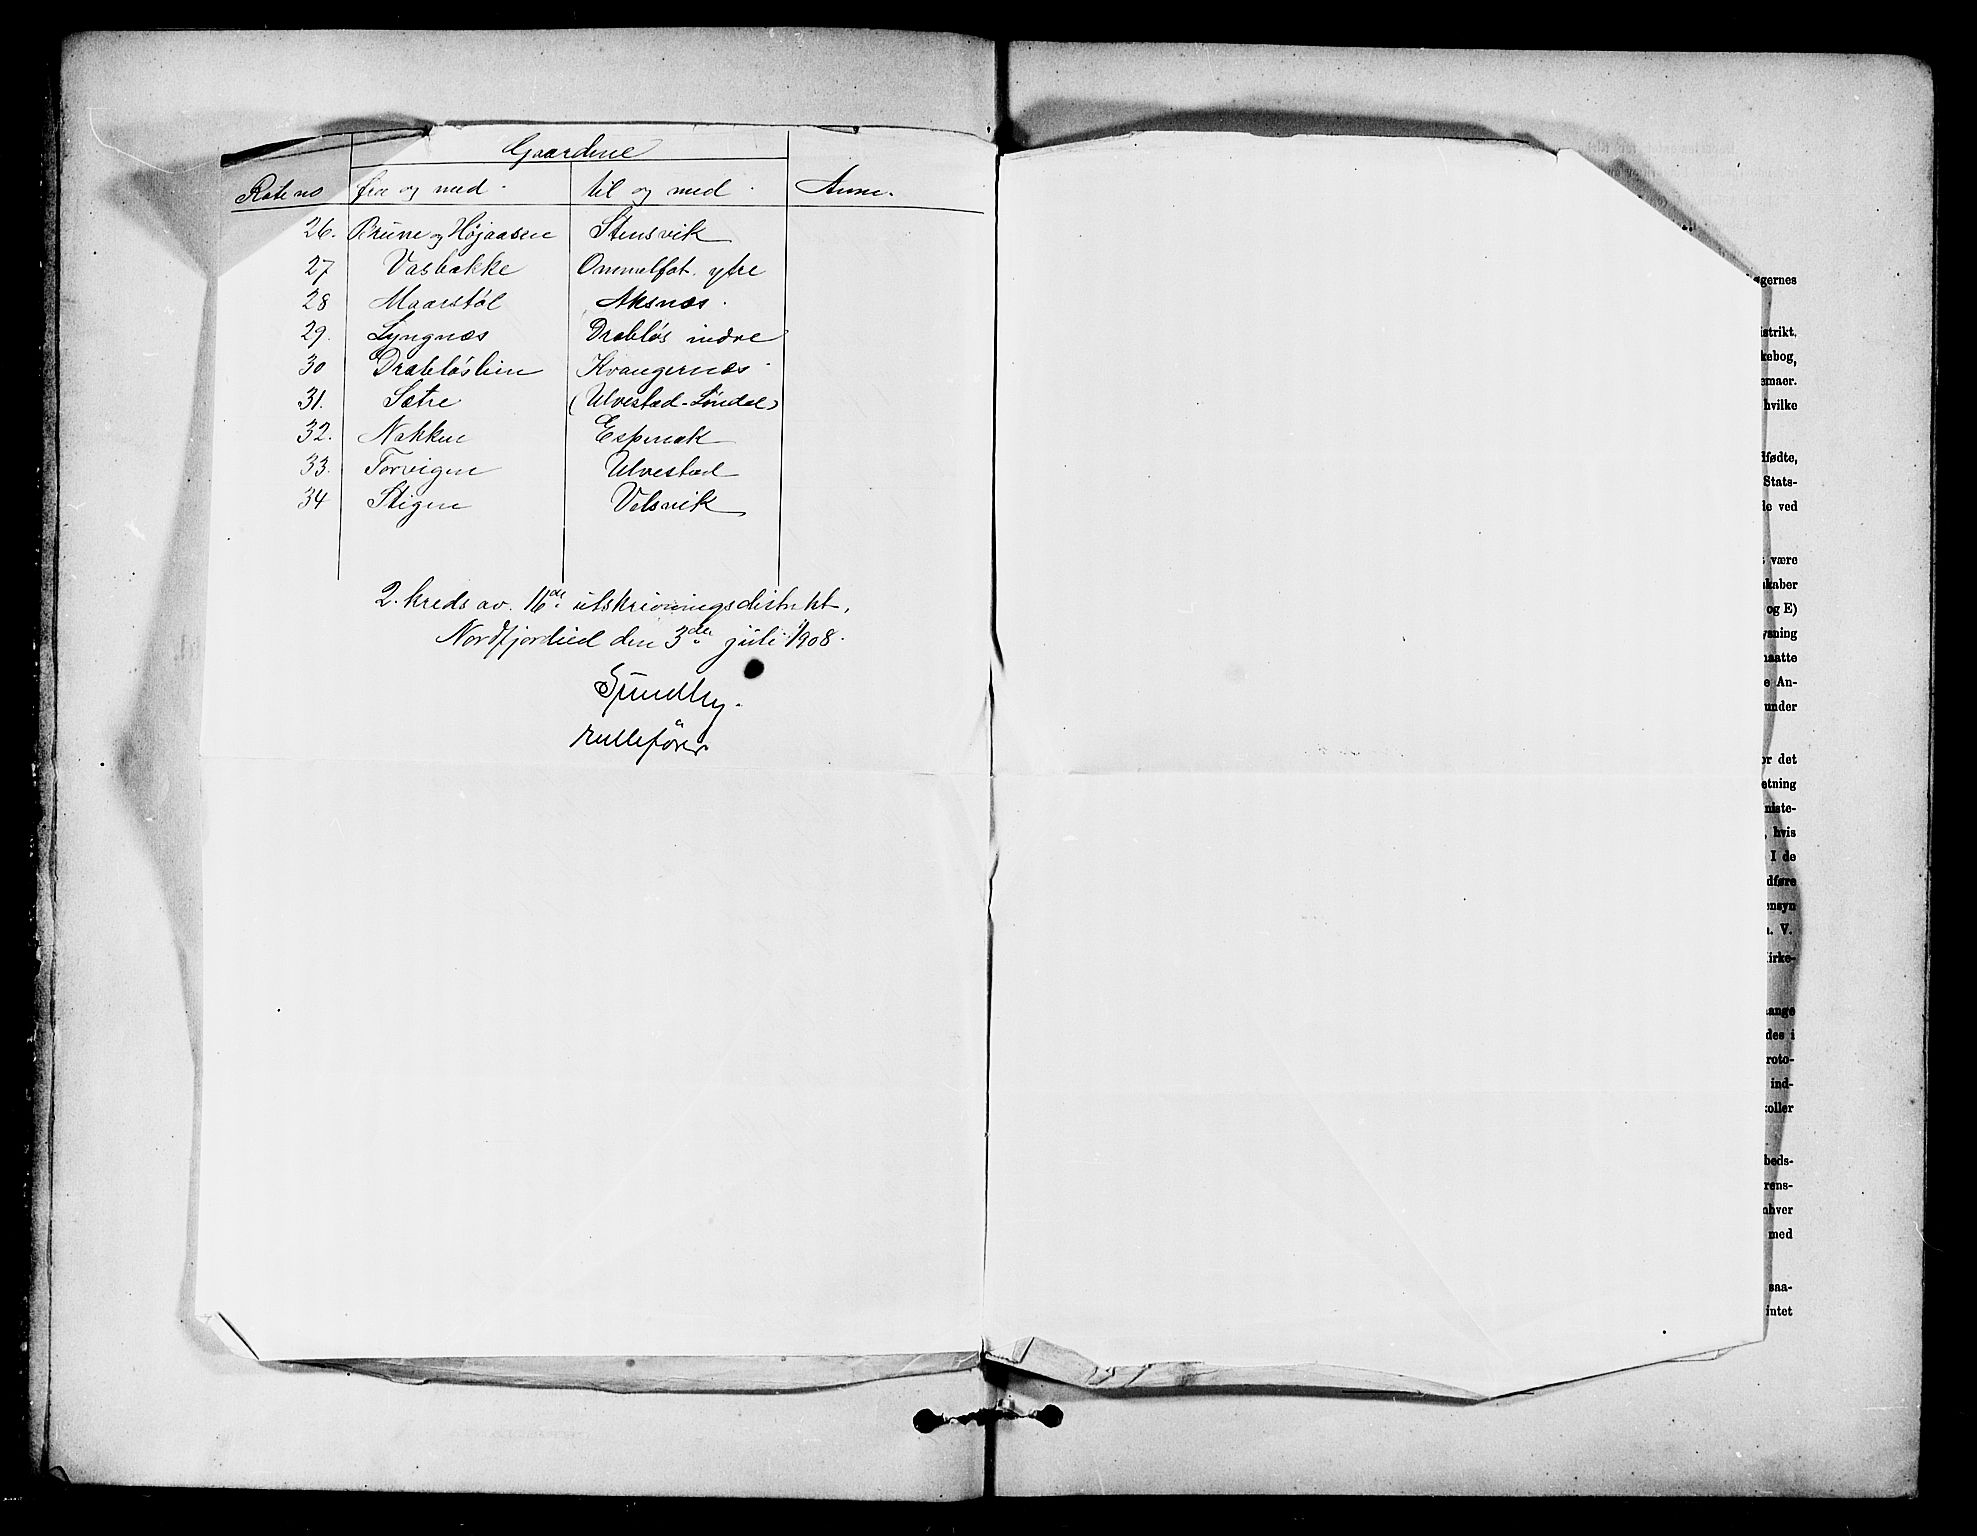 Gaardene
Rote no fra og med til og med Anm.
26. Brune og Højaasen Stensvik
27 Vasbakke Ommelfot. ytre
28 Maarstøl Aksnæs.
29. Lyngnæs Drabløs indre
30 Drabløslien Kvangernæs
31. Sætre (Ulvestad-Løndal)
32. Nakken Espenak
33. Torvigen Ulvestad
34 Stigen Velsvik
2. kreds av. 16de utskrivningsdistrikt.
Nordfjordeid den 3die juli 1908.
Sundby.
rullefører
gernes
istrikt,
kebog,
emaer.
hvilke
dfødte,
Stats-
de ved
være
kaber
og E)
ysning
maatte
e An-
under
or det
etning
niste-
, hvis
I de
dføre
ensyn
n. V.
Kirke-
ange
des i
roto-
ind-
koller
beds-
rens-
nhver
med
saa-
intet